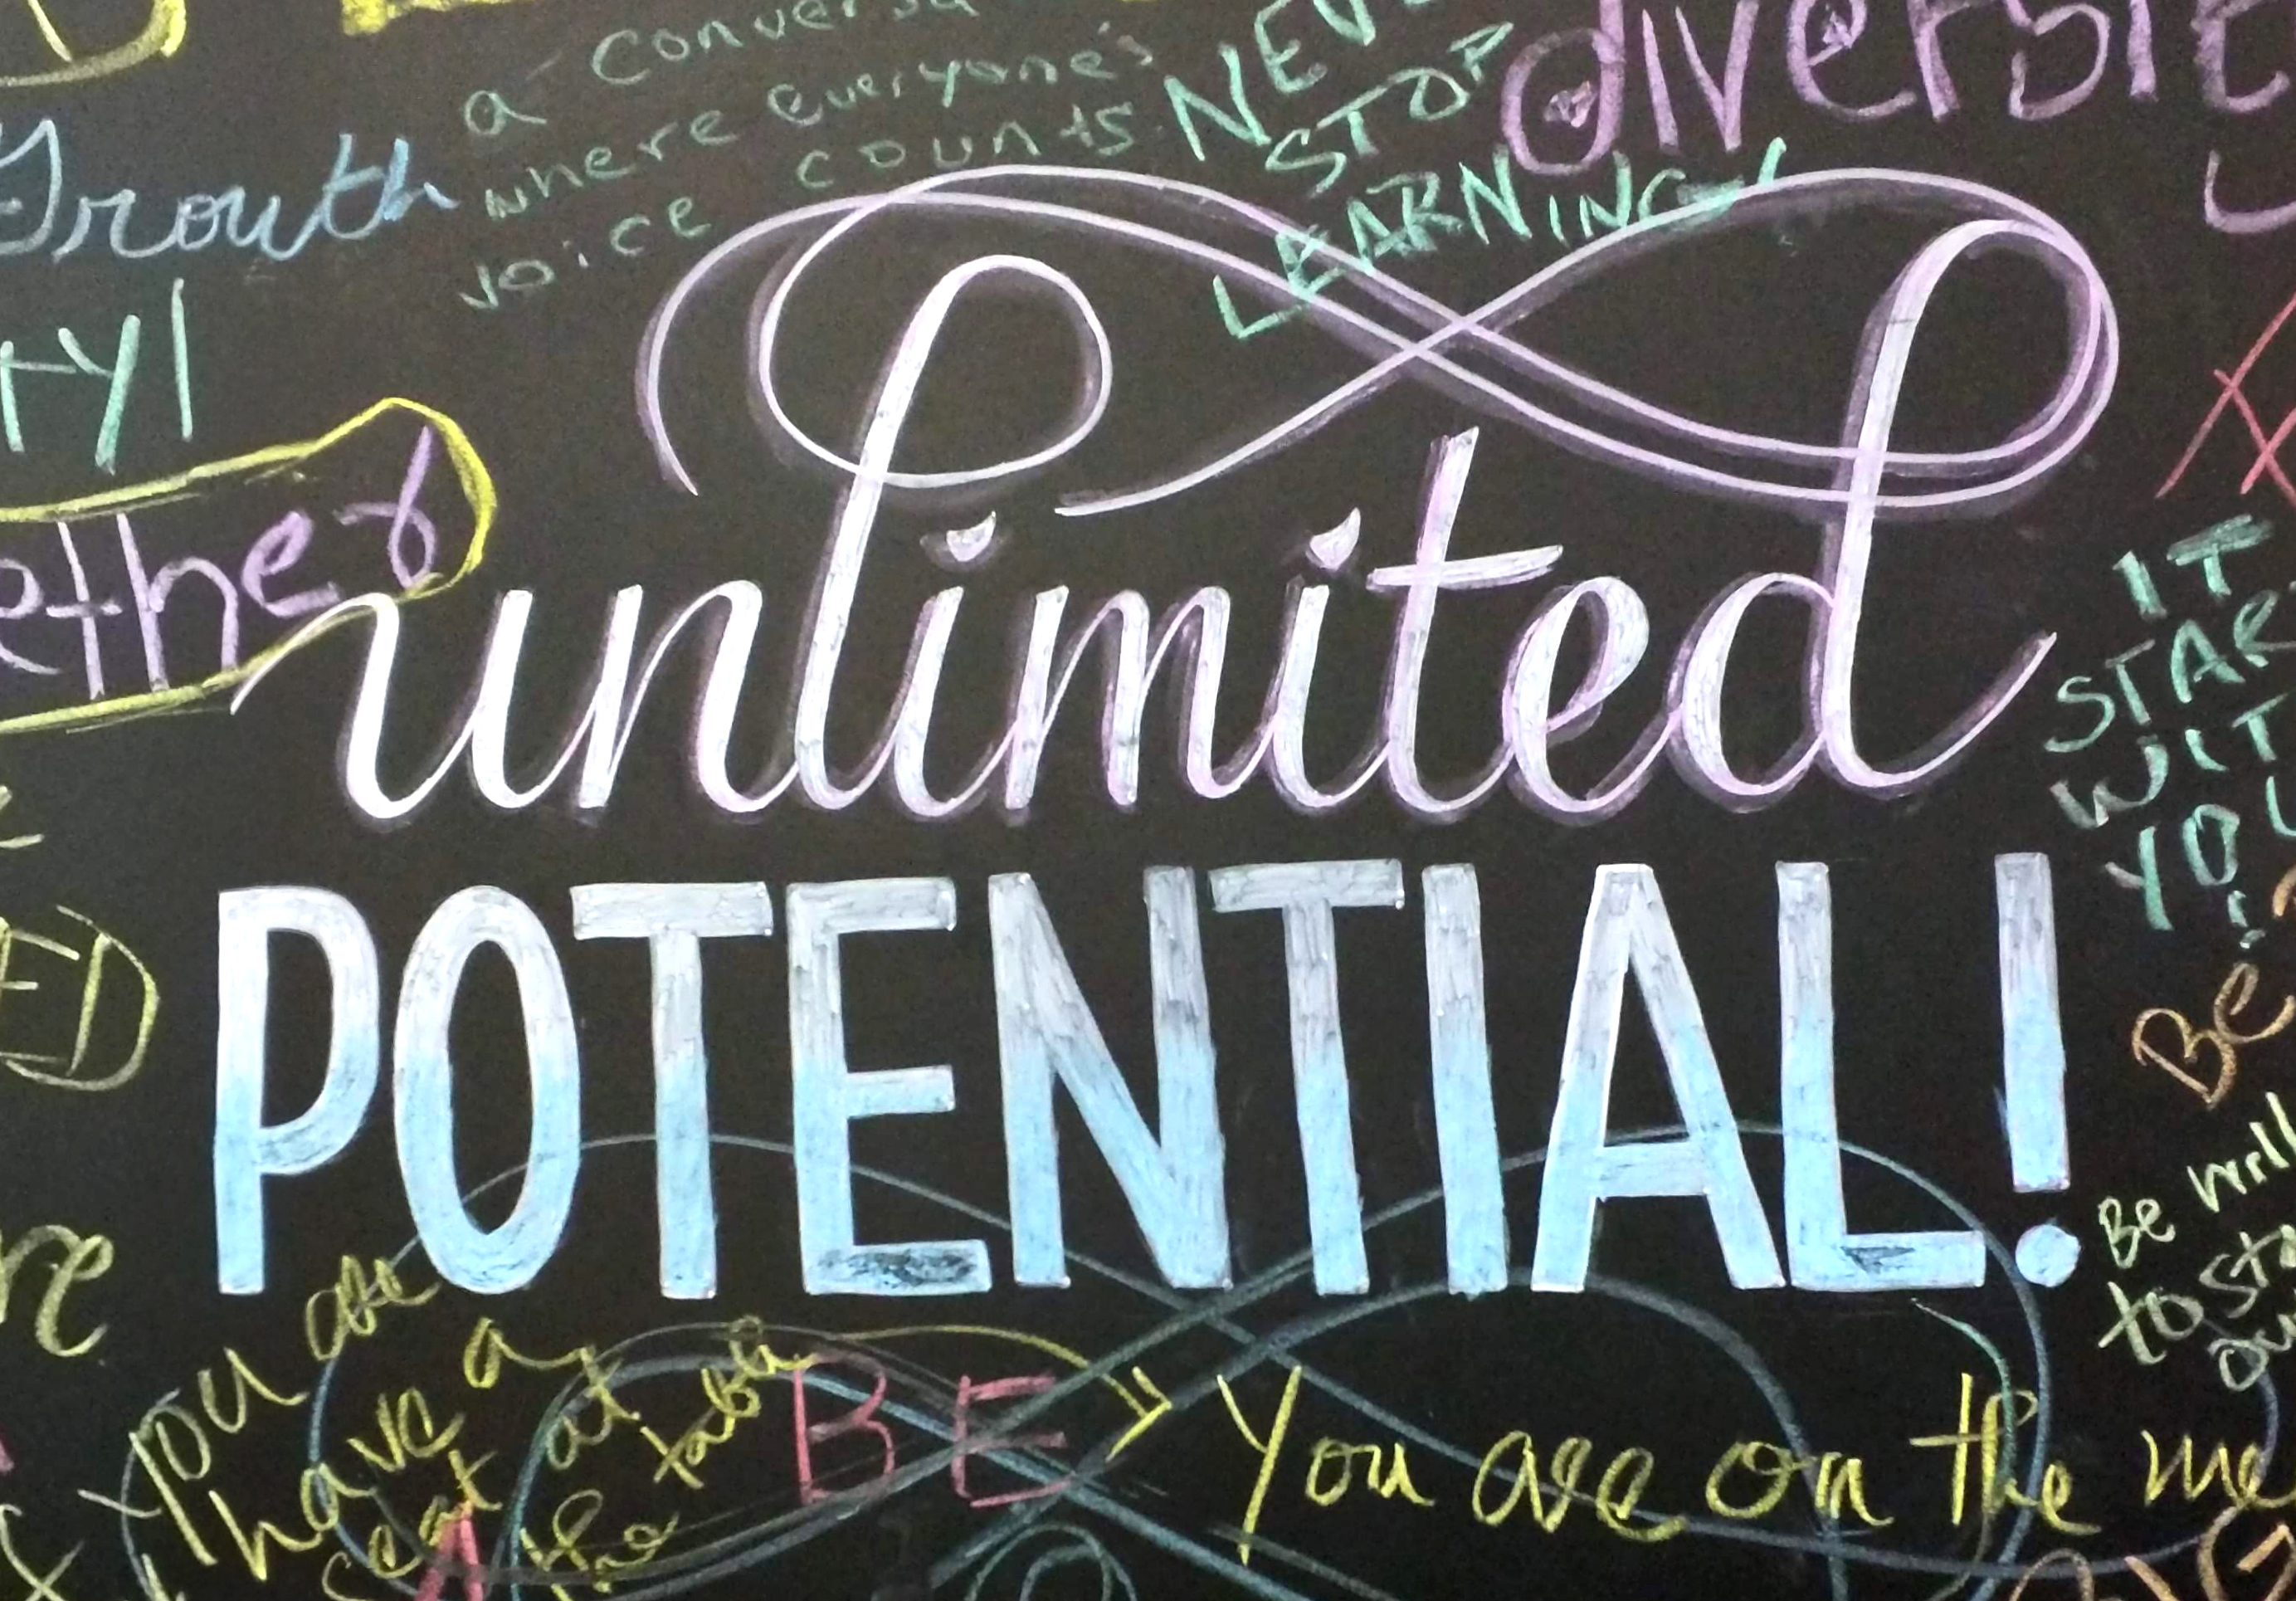 a
where everyone's
voice counts
NEV
STOP
LEARNING!
Growth
unlimited
POTENTIAL!
IT
STAR
WIT
YO
Be
Be will
to sta
You are
have a
seat at
the table
BE
You are on the me